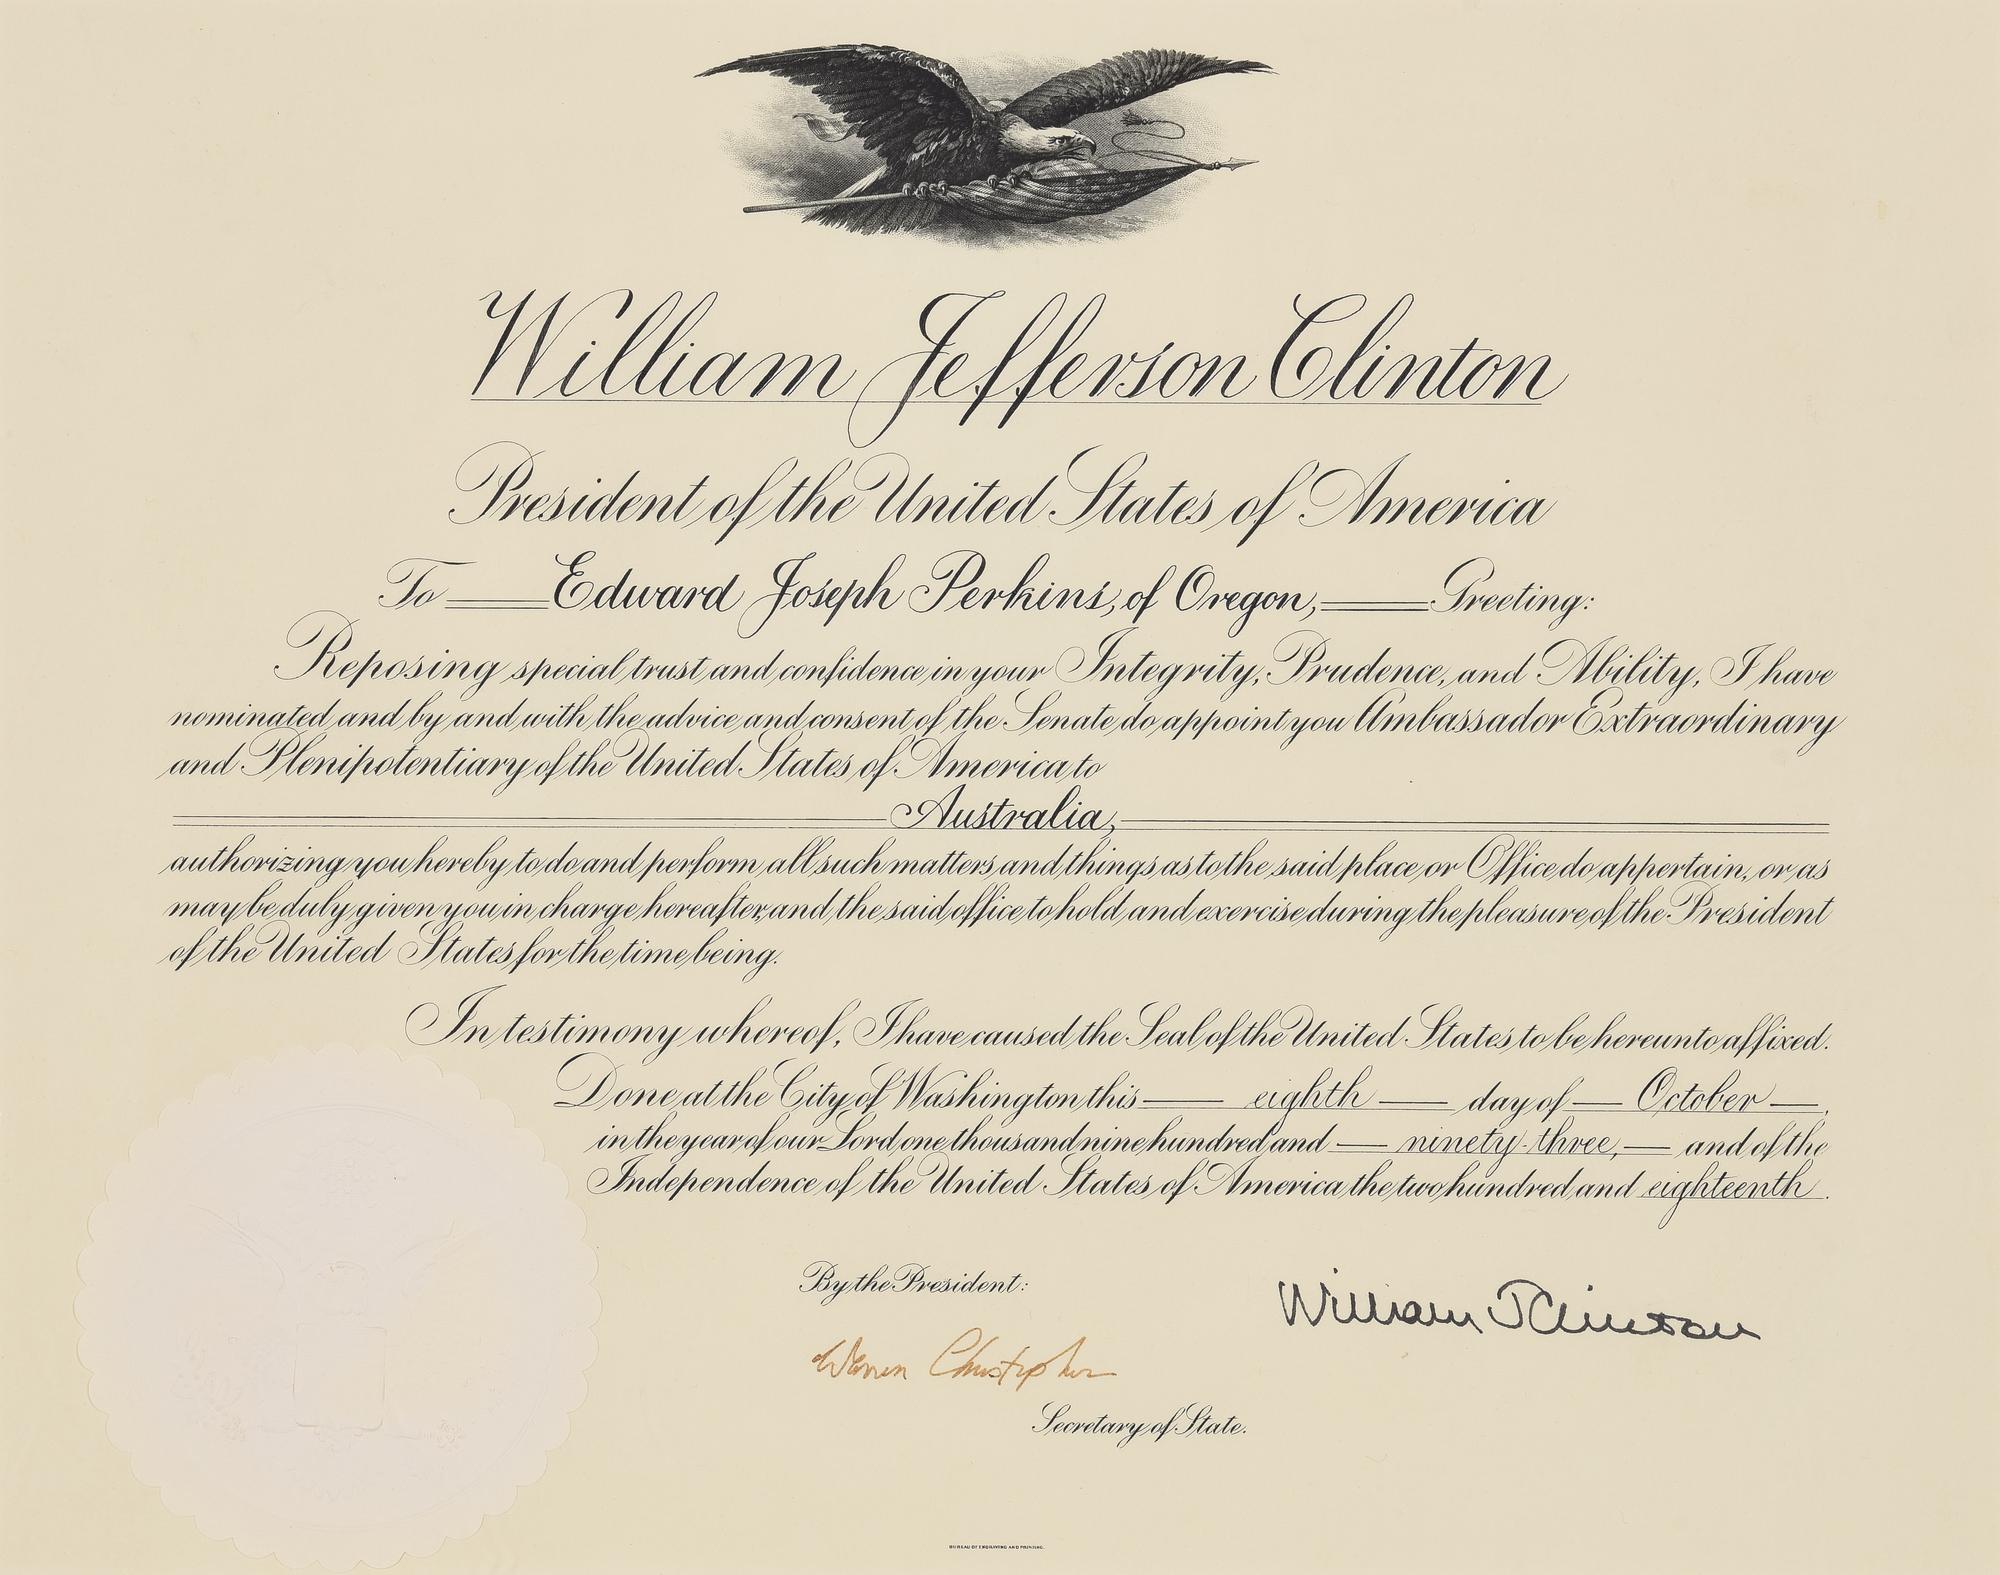 William Jefferson Clinton
President of the United States of America
To Edward Joseph Perkins, of Oregon, Greeting:
Reposing special trust and confidence in your Integrity, Prudence, and Ability, I have
nominated and by and with the advice and consent of the Senate do appoint you Ambassador Extraordinary
and Plenipotentiary of the United States of America to
Australia,
authorizing you hereby to do and perform all such matters and things as to the said place or Office do appertain, or as
may be duly given you in charge hereafter, and the said office to hold and exercise during the pleasure of the President
of the United States for the time being.
In testimony whereof, I have caused the Seal of the United States to be hereunto affixed.
Done at the City of Washington this eighth day of October,
in the year of our Lord one thousand nine hundred and ninety-three, and of the
Independence of the United States of America the two hundred and eighteenth.
By the President:
William J Clinton
Warren Christopher
Secretary of State.
BUREAU OF ENGRAVING AND PRINTING.